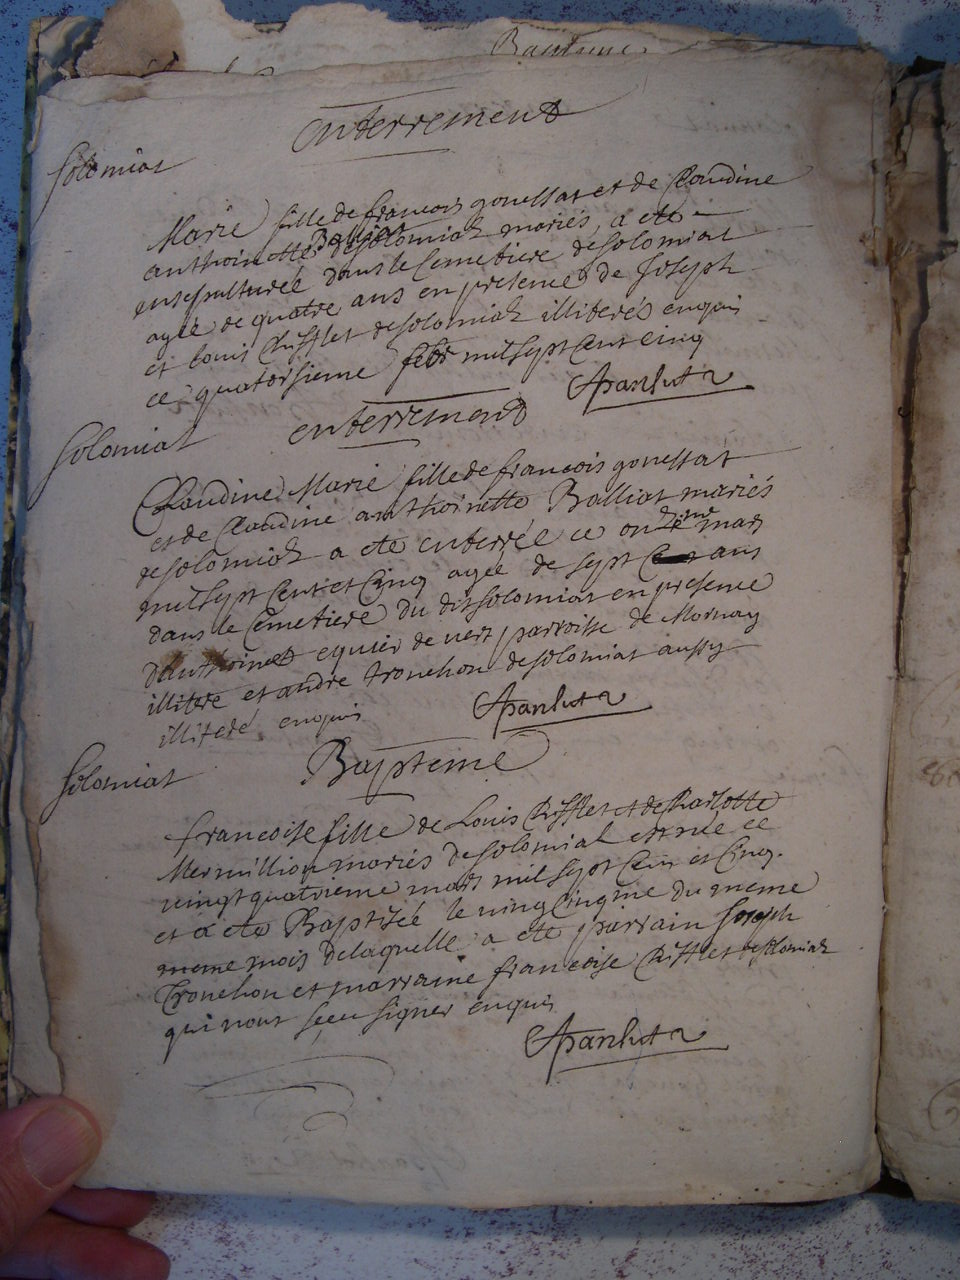 Bapteme
enterrement
solomiat
Marie fille de francois gonessat et de Claudine
anthoinette Balliat de solomiat mariés, a ete
ensepulturée dans le Cemetiere de solomiat
agée de quatre ans en presence de Joseph
et louis Chifflet de solomiat illiterés enquis
ce quatorsieme febr mil sept Cent cinq
enterrement
solomiat
Claudine Marie fille de francois gonessat
et de Claudine anthoinette Balliat mariés
de solomiat a ete enterrée ce onzieme mars
mil sept Cent et Cinq agée de sept ans
dans le Cemetiere du dit solomiat en presence
d'anthoine equier de vers parroisse de Mornay
illitere et andre tronchon de solomiat aussy
illiteré enquis
Bapteme
solomiat
francoise fille de Louis Chifflet et de Charlotte
Mermillion mariés de solomiat est née ce
vingt quatrieme mars mil sept Cen et Cinq.
et a ete Baptisée le vingt Cinqme du meme
meme mois de laquelle a ete parrain Joseph
Tronchon et marraine francoise Chifflet de solomiat
qui n'ont sceu signer enquis